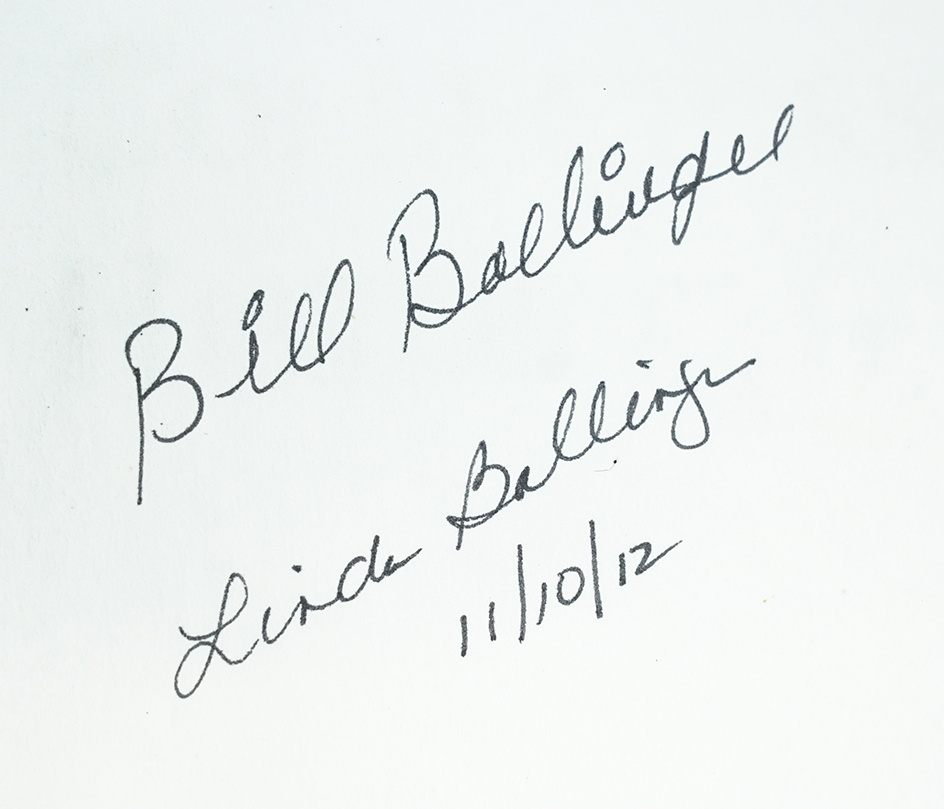 Bill Ballinger
Linda Ballinger
11/10/12